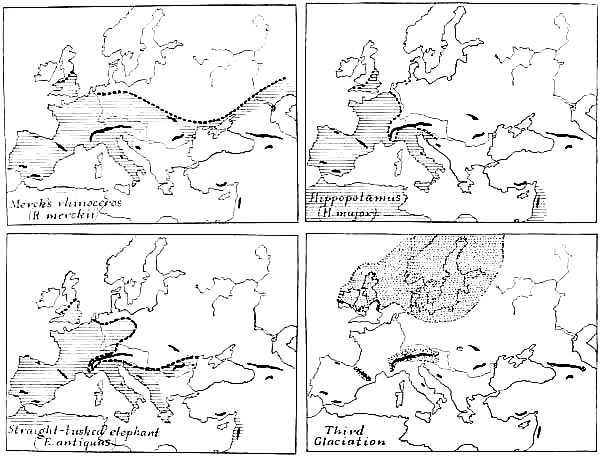 Merck's rhinoceros
(R. merckii)
Hippopotamus
(H. major)
Straight-tusked elephant
(E. antiquas)
Third
Glaciation